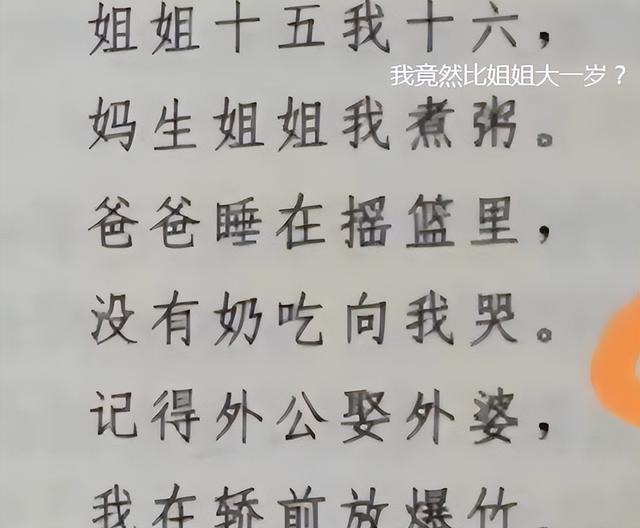 姐姐十五我十六，
我竟然比姐姐大一岁？
妈生姐姐我煮粥。
爸爸睡在摇篮里，
没有奶吃向我哭。
记得外公娶外婆，
我在轿前放爆竹